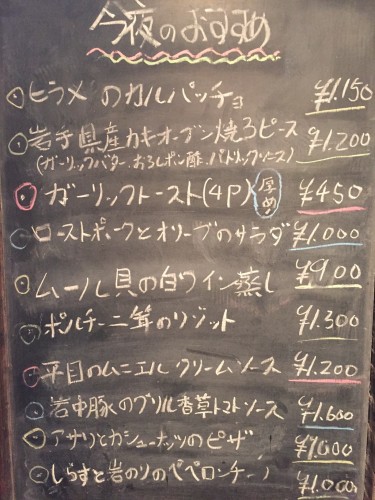 今夜のおすすめ
ヒラメのカルパッチョ ¥1.150
岩手県産カキオーブン焼3ピース ¥1.200
(ガーリックバター.おろしポン酢.パトリックソース)
ガーリックトースト(4P) 厚め! ¥450
ローストポークとオリーブのサラダ ¥1.000
ムール貝の白ワイン蒸し ¥900
ポルチーニ茸のリゾット ¥1.300
平目のムニエル クリームソース ¥1.200
岩中豚のグリル香草トマトソース ¥1.600
アサリとカシューナッツのピザ ¥1.000
しらすと岩のりのペペロンチーノ ¥1.000